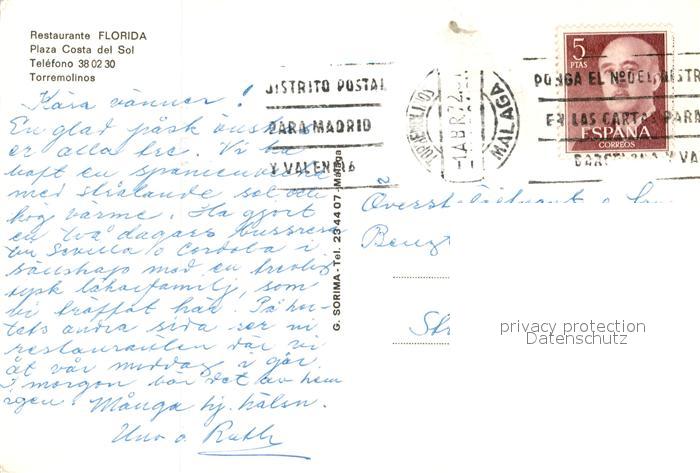 Restaurante FLORIDA
Plaza Costa del Sol
Teléfono 38 02 30
Torremolinos
Kära vänner!
En glad påsk önskas
er alla tre. Vi ha
haft en
med strålande sol och
hög värme. Ha gjort
en två dagars bussresa
till Sevilla o Cordoba i
sällskap med en trevlig
tysk läkarfamilj, som
vi träffat här. På ho-
tels andra sida ser ni
restauranten där vi
åt vår middag i går
I morgon bär det av hem
igen. Många hj. hälsn.
Uno o. Ruth
G. SORIMA - Tel. 23 44 07 - Málaga
DISTRITO POSTAL
PARA MADRID
Y VALENCIA
1 ABR 72
MALAGA
PONGA EL Nº DEL DISTR
EN LAS CARTAS PARA
BARCELONA Y VA
5
PTAS
ESPAÑA
CORREOS
Överst
Bengt
privacy protection
Datenschutz